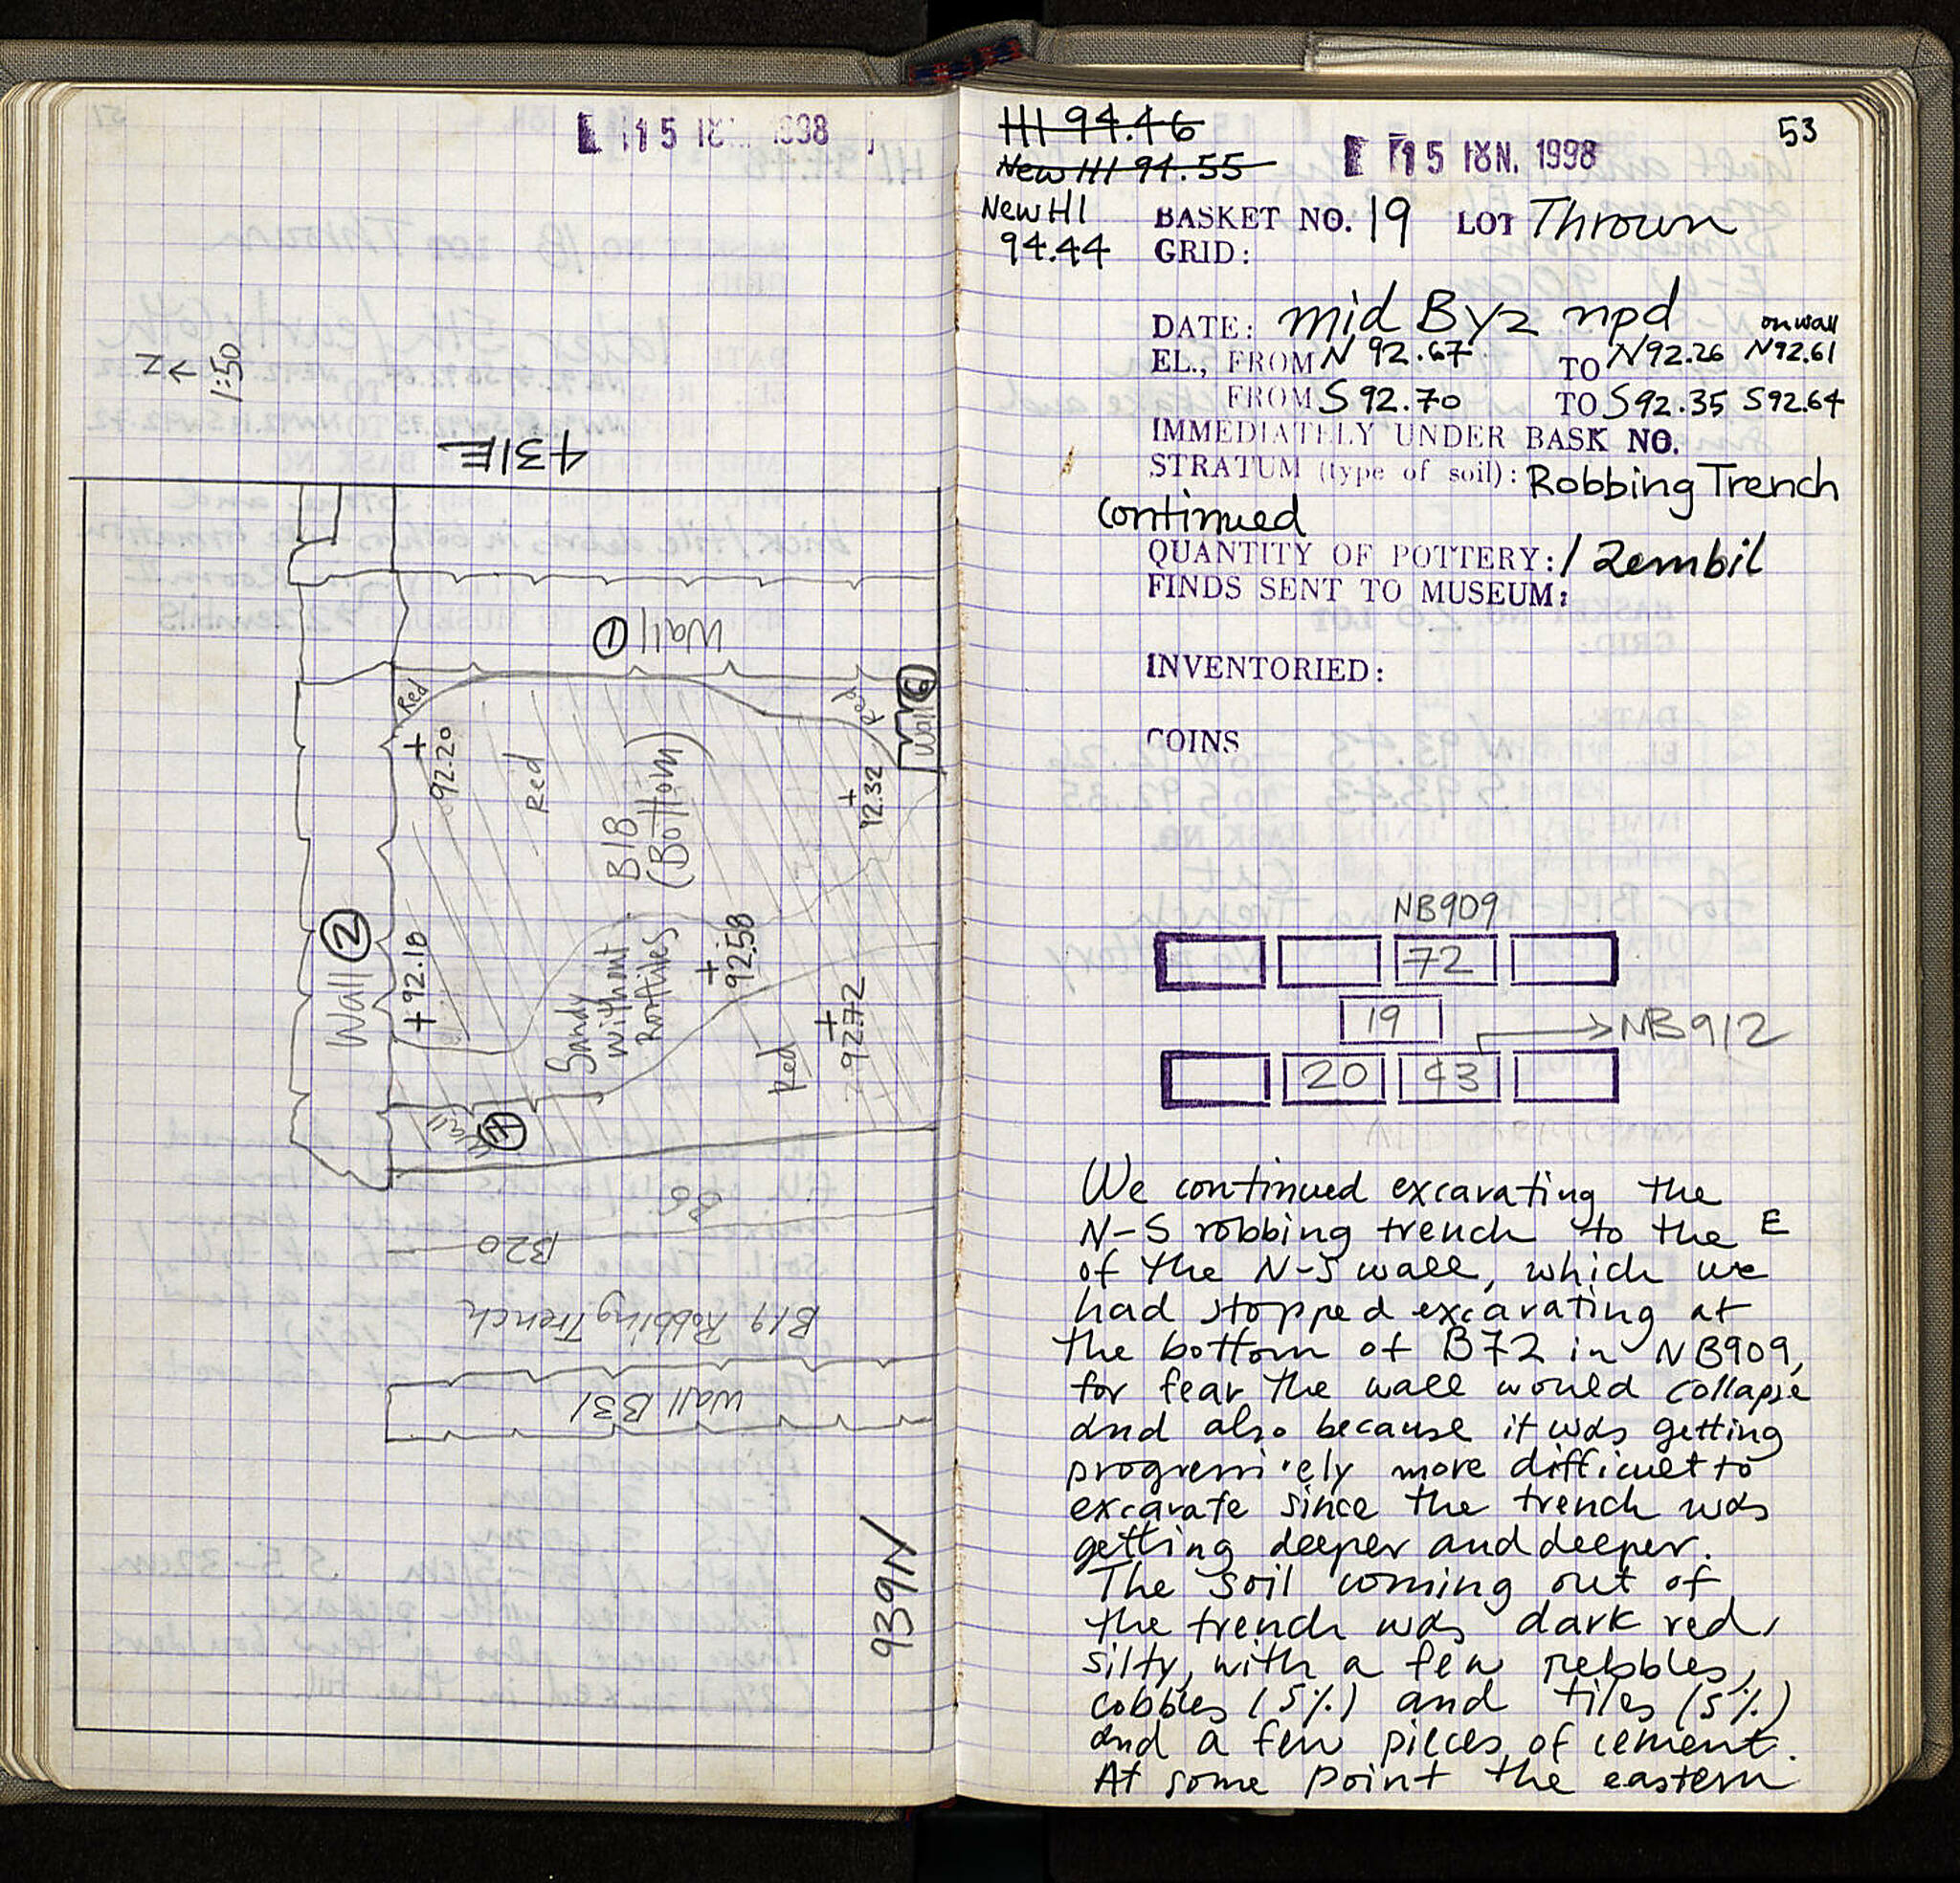 15 1998
N
1:50
431E
Wall ①
Wall ⑥
Red
Red
92.20
Red
B18
(Bottom)
92.32
Wall ②
92.18
Sandy
without
Rooftiles
92.58
Red
92.72
Wall
B6
B20
B19 Robbing Trench
Wall B31
939N
53
HI 94.46
New HI 94.55
15 ΙΟΥΝ. 1998
New HI
94.44
BASKET NO. 19 LOT Thrown
GRID:
DATE: mid Byz npd on wall
EL., FROM N 92.67 TO N92.26 N92.61
FROM S 92.70 TO S92.35 S92.64
IMMEDIATELY UNDER BASK NO.
STRATUM (type of soil): Robbing Trench
continued
QUANTITY OF POTTERY: 1 Zembil
FINDS SENT TO MUSEUM:
INVENTORIED:
COINS
NB909
72
19 NB912
20 43
We continued excavating the
N-S robbing trench to the E
of the N-S wall, which we
had stopped excavating at
the bottom of B72 in NB909,
for fear the wall would collapse
and also because it was getting
progressively more difficult to
excavate since the trench was
getting deeper and deeper.
The soil coming out of
the trench was dark red,
silty, with a few pebbles,
cobbles (5%) and tiles (5%)
and a few pieces of cement.
At some point the eastern